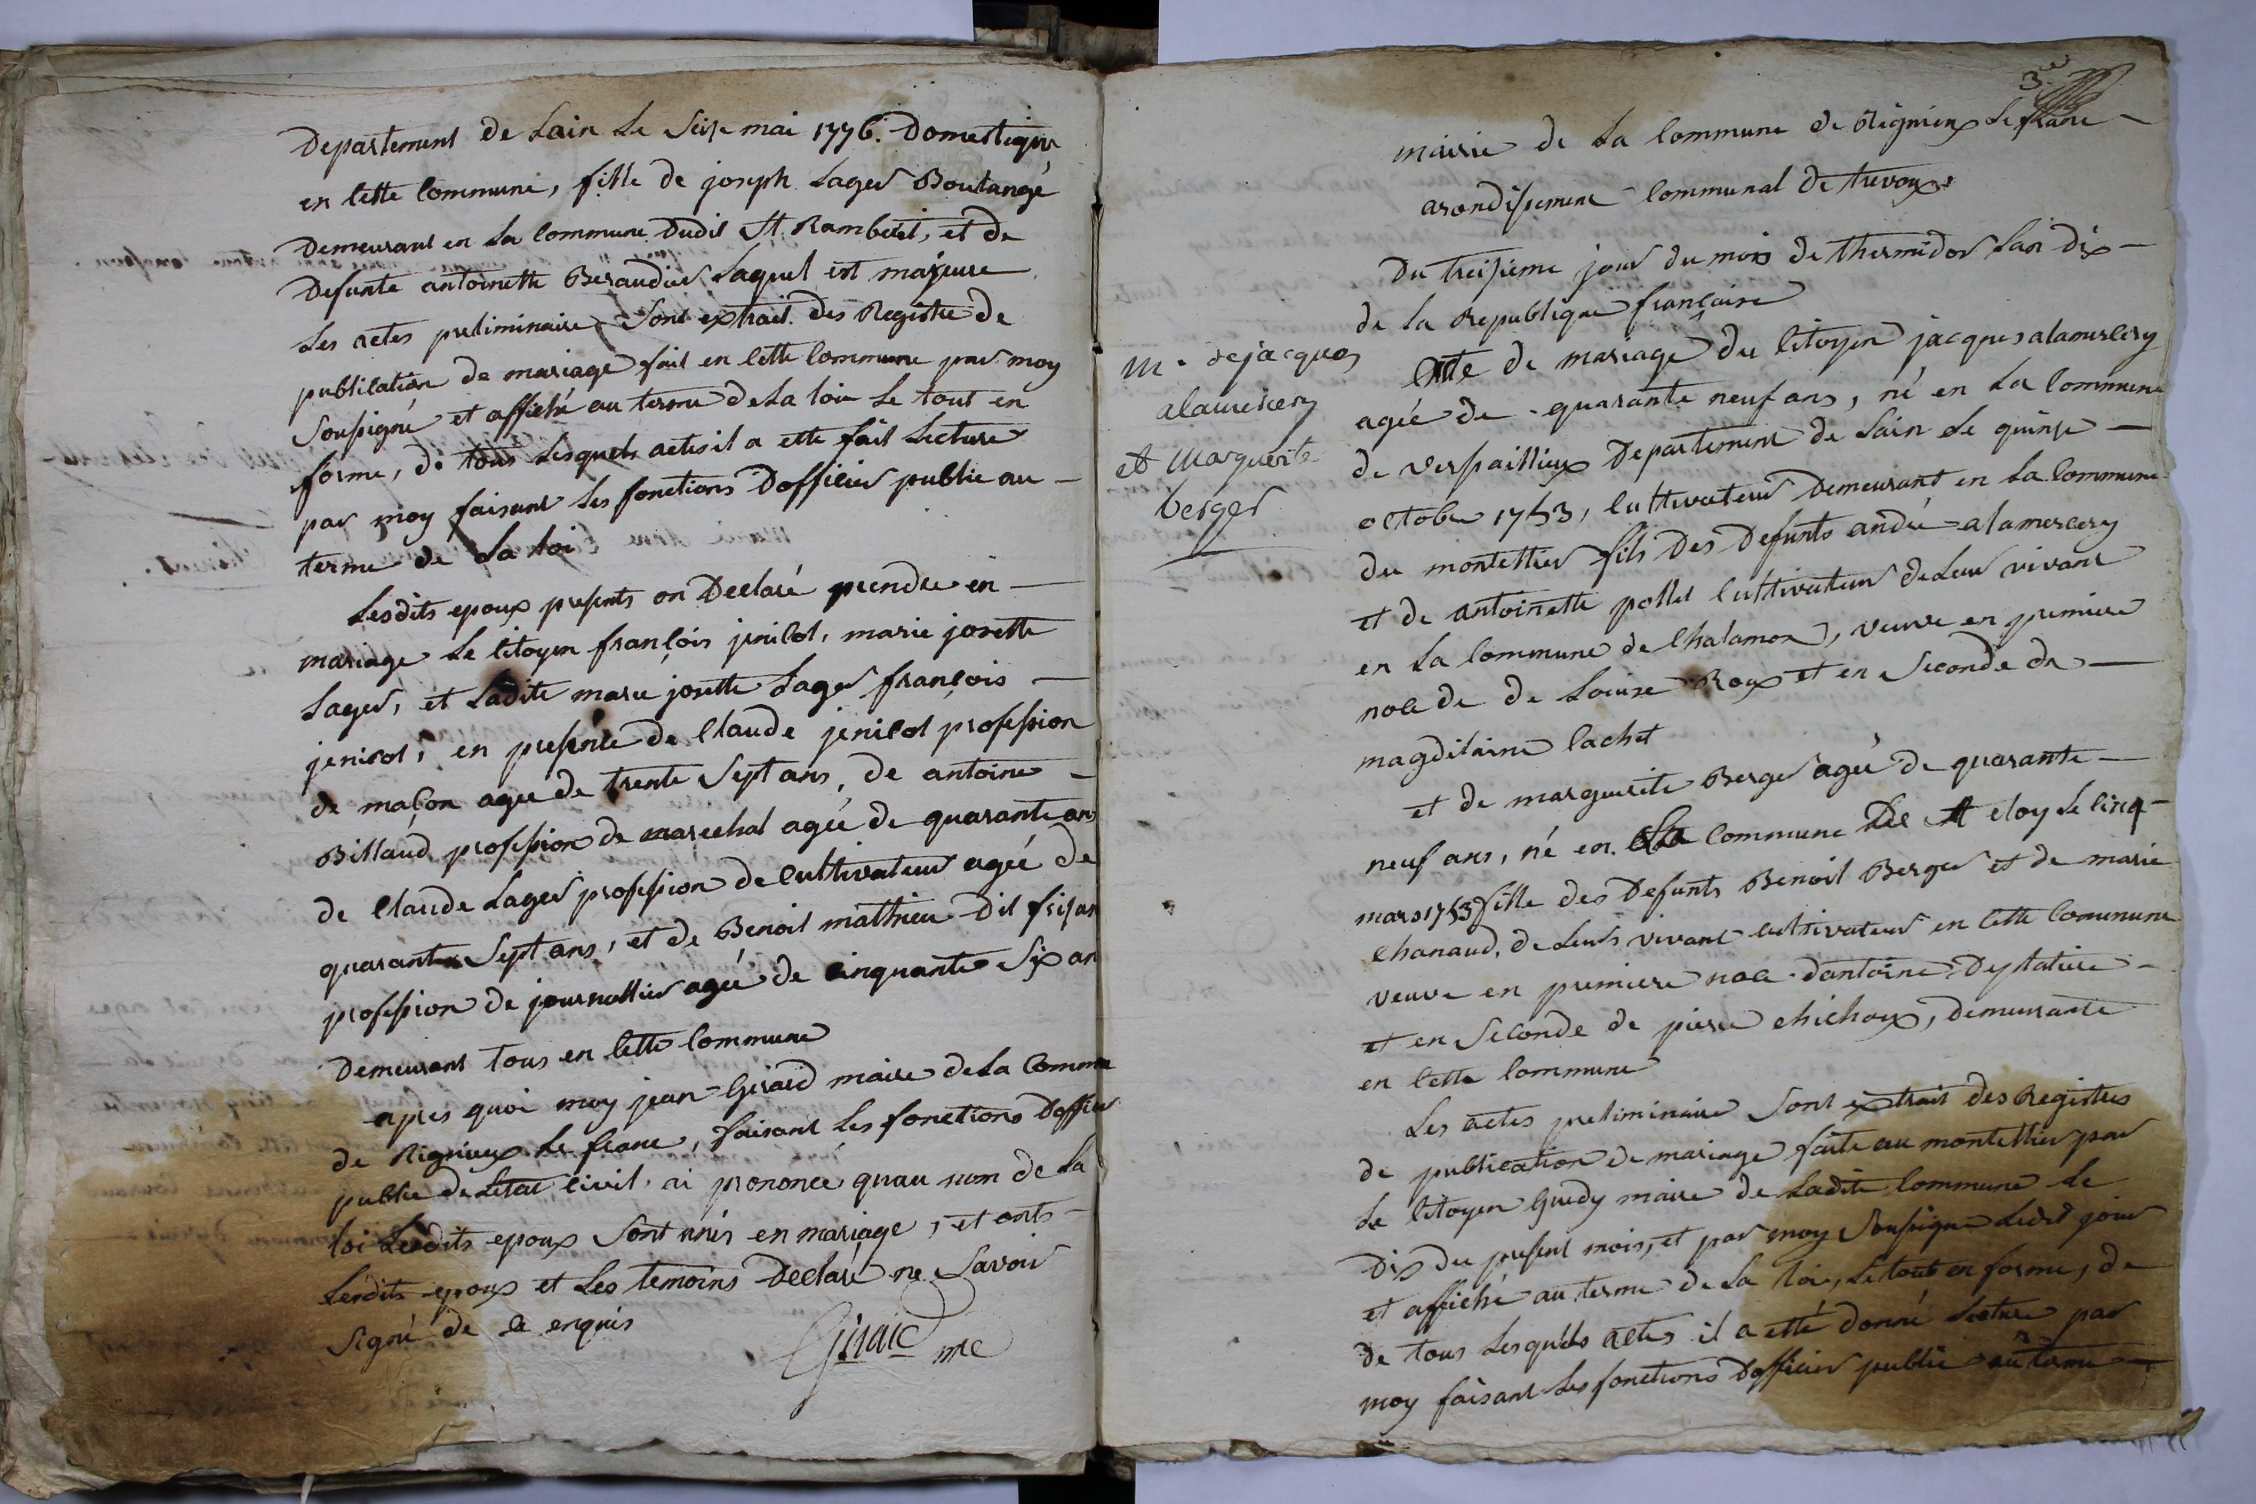 Departement de Lain le Seize mai 1776. Domestique
en cette commune, fille de joseph Lager Boulangé
Demeurant en la commune dudit St. Rambert, et de
Defunte antoinette Beraudier laquel est majeure
Les actes preliminaire Sont extrait des Registre de
publication de mariage fait en cette commune par moy
Soussigné et affiché au terme de la loi le tout en
forme, de tous lesquels actes il a ette fait lecture
par moy faisant les fonctions Dofficier public au
terme de la loi
Lesdits epoux presents on Declaré prendre en
mariage le citoyen françois jenicot, marie josette
Lager, et ladite marie josette Lager françois
jenicot, en presence de claude jenicot profession
de maçon agee de trente Sept ans, de antoine
Billaud profession de marechal agée de quarante ans
de claude Lager profession de cultivateur agée de
quarante Sept ans, et de Benoit matthieu dit
profession de journallier agée de cinquante Six an
Demeurant tous en cette commune
apres quoi moy jean Girard maire de la comme
de Rignieux le franc, faisant les fonctions Dofficier
public de letat civil, ai prononcé quau nom de la
loi lesdits epoux Sont unis en mariage, et onts
lesdits epoux et les temoins Declaré ne Savoir
Signé de ce enquis
Girard me
3e
mairie de la commune de Rignieux le franc
arondissement communal de trevoux
Du treizieme jour du mois de thermidor lan dix
de la Republique française
m. de jacques
alamercery
et Marguerite
berger
acte de mariage du citoyen jacques alamercery
agée de quarante neuf ans, né en la commune
de versaillieux Departement de Lain le quinze
octobre 1753, cultivateur Demeurant en la commune
du montellier fils des Defunts andré alamercery
et de antoinette pollet cultivateur de leur vivant
en la commune de chalamon, veuve en premiere
noce de de Louise Roux et en Seconde de
magdelaine cachet
et de marguerite Berger agée de quarante
neuf ans, né en la commune de St eloy le cinq
mars 1753 fille des Defunts Benoit Berger et de marie
chanaud, de leurs vivant cultivateur en cette commune
veuve en premiere noce dantoine
et en Seconde de pierre chichoux, demeurante
en cette commune
Les actes preliminaire Sont extrait des Registres
de publication de mariage faite au montellier par
le citoyen Guedy maire de ladite commune le
Dix du present mois, et par moy Soussigné ledit jour
et affiché au terme de la loi, le tout en forme, de
de tous lesquels actes il a etté donné lecture par
moy faisant les fonctions Dofficier public au terme